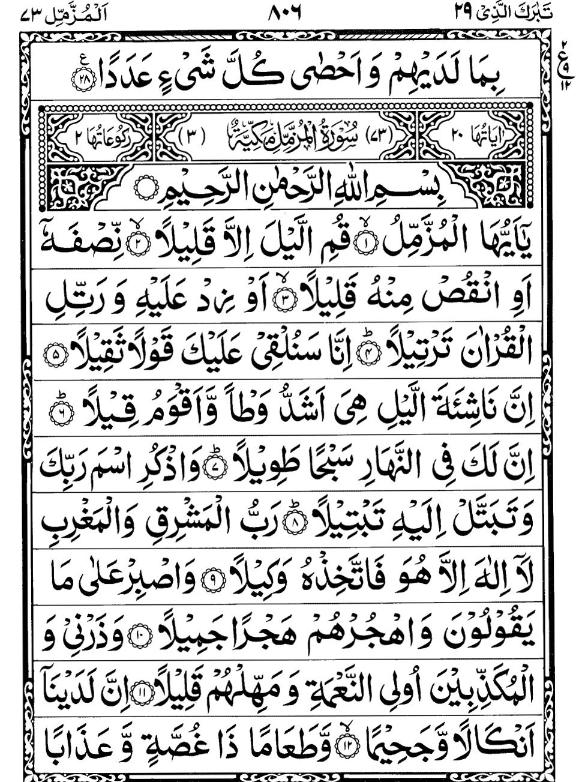 تَبٰرَكَ الَّذِىْ ٢٩ ٨٠٦ اَلْمُزَّمِّل ٧٣
بِمَا لَدَيْهِمْ وَ اَحْصٰى كُلَّ شَىْءٍ عَدَدًا ع ٢٨ ٢ ع ١٢
اٰيَاتُهَا ٢٠ (٧٣) سُوْرَةُ الْمُزَّمِّلِ مَكِّيَّةٌ (٣) رُكُوْعَاتُهَا ٢
بِسْمِ اللّٰهِ الرَّحْمٰنِ الرَّحِيْمِ
يٰۤاَيُّهَا الْمُزَّمِّلُ ١ قُمِ الَّيْلَ اِلَّا قَلِيْلًا ٢ نِّصْفَهٗۤ
اَوِ انْقُصْ مِنْهُ قَلِيْلًا ٣ اَوْ زِدْ عَلَيْهِ وَ رَتِّلِ
الْقُرْاٰنَ تَرْتِيْلًا ؕ ٤ اِنَّا سَنُلْقِىْ عَلَيْكَ قَوْلًا ثَقِيْلًا ٥
اِنَّ نَاشِئَةَ الَّيْلِ هِىَ اَشَدُّ وَطْاً وَّاَقْوَمُ قِيْلًا ؕ ٦
اِنَّ لَكَ فِى النَّهَارِ سَبْحًا طَوِيْلًا ؕ ٧ وَاذْكُرِ اسْمَ رَبِّكَ
وَ تَبَتَّلْ اِلَيْهِ تَبْتِيْلًا ؕ ٨ رَبُّ الْمَشْرِقِ وَالْمَغْرِبِ
لَاۤ اِلٰهَ اِلَّا هُوَ فَاتَّخِذْهُ وَكِيْلًا ٩ وَاصْبِرْ عَلٰى مَا
يَقُوْلُوْنَ وَ اهْجُرْهُمْ هَجْرًا جَمِيْلًا ١٠ وَ ذَرْنِىْ وَ
الْمُكَذِّبِيْنَ اُولِى النَّعْمَةِ وَ مَهِّلْهُمْ قَلِيْلًا ١١ اِنَّ لَدَيْنَاۤ
اَنْكَالًا وَّ جَحِيْمًا ١٢ وَّ طَعَامًا ذَا غُصَّةٍ وَّ عَذَابًا